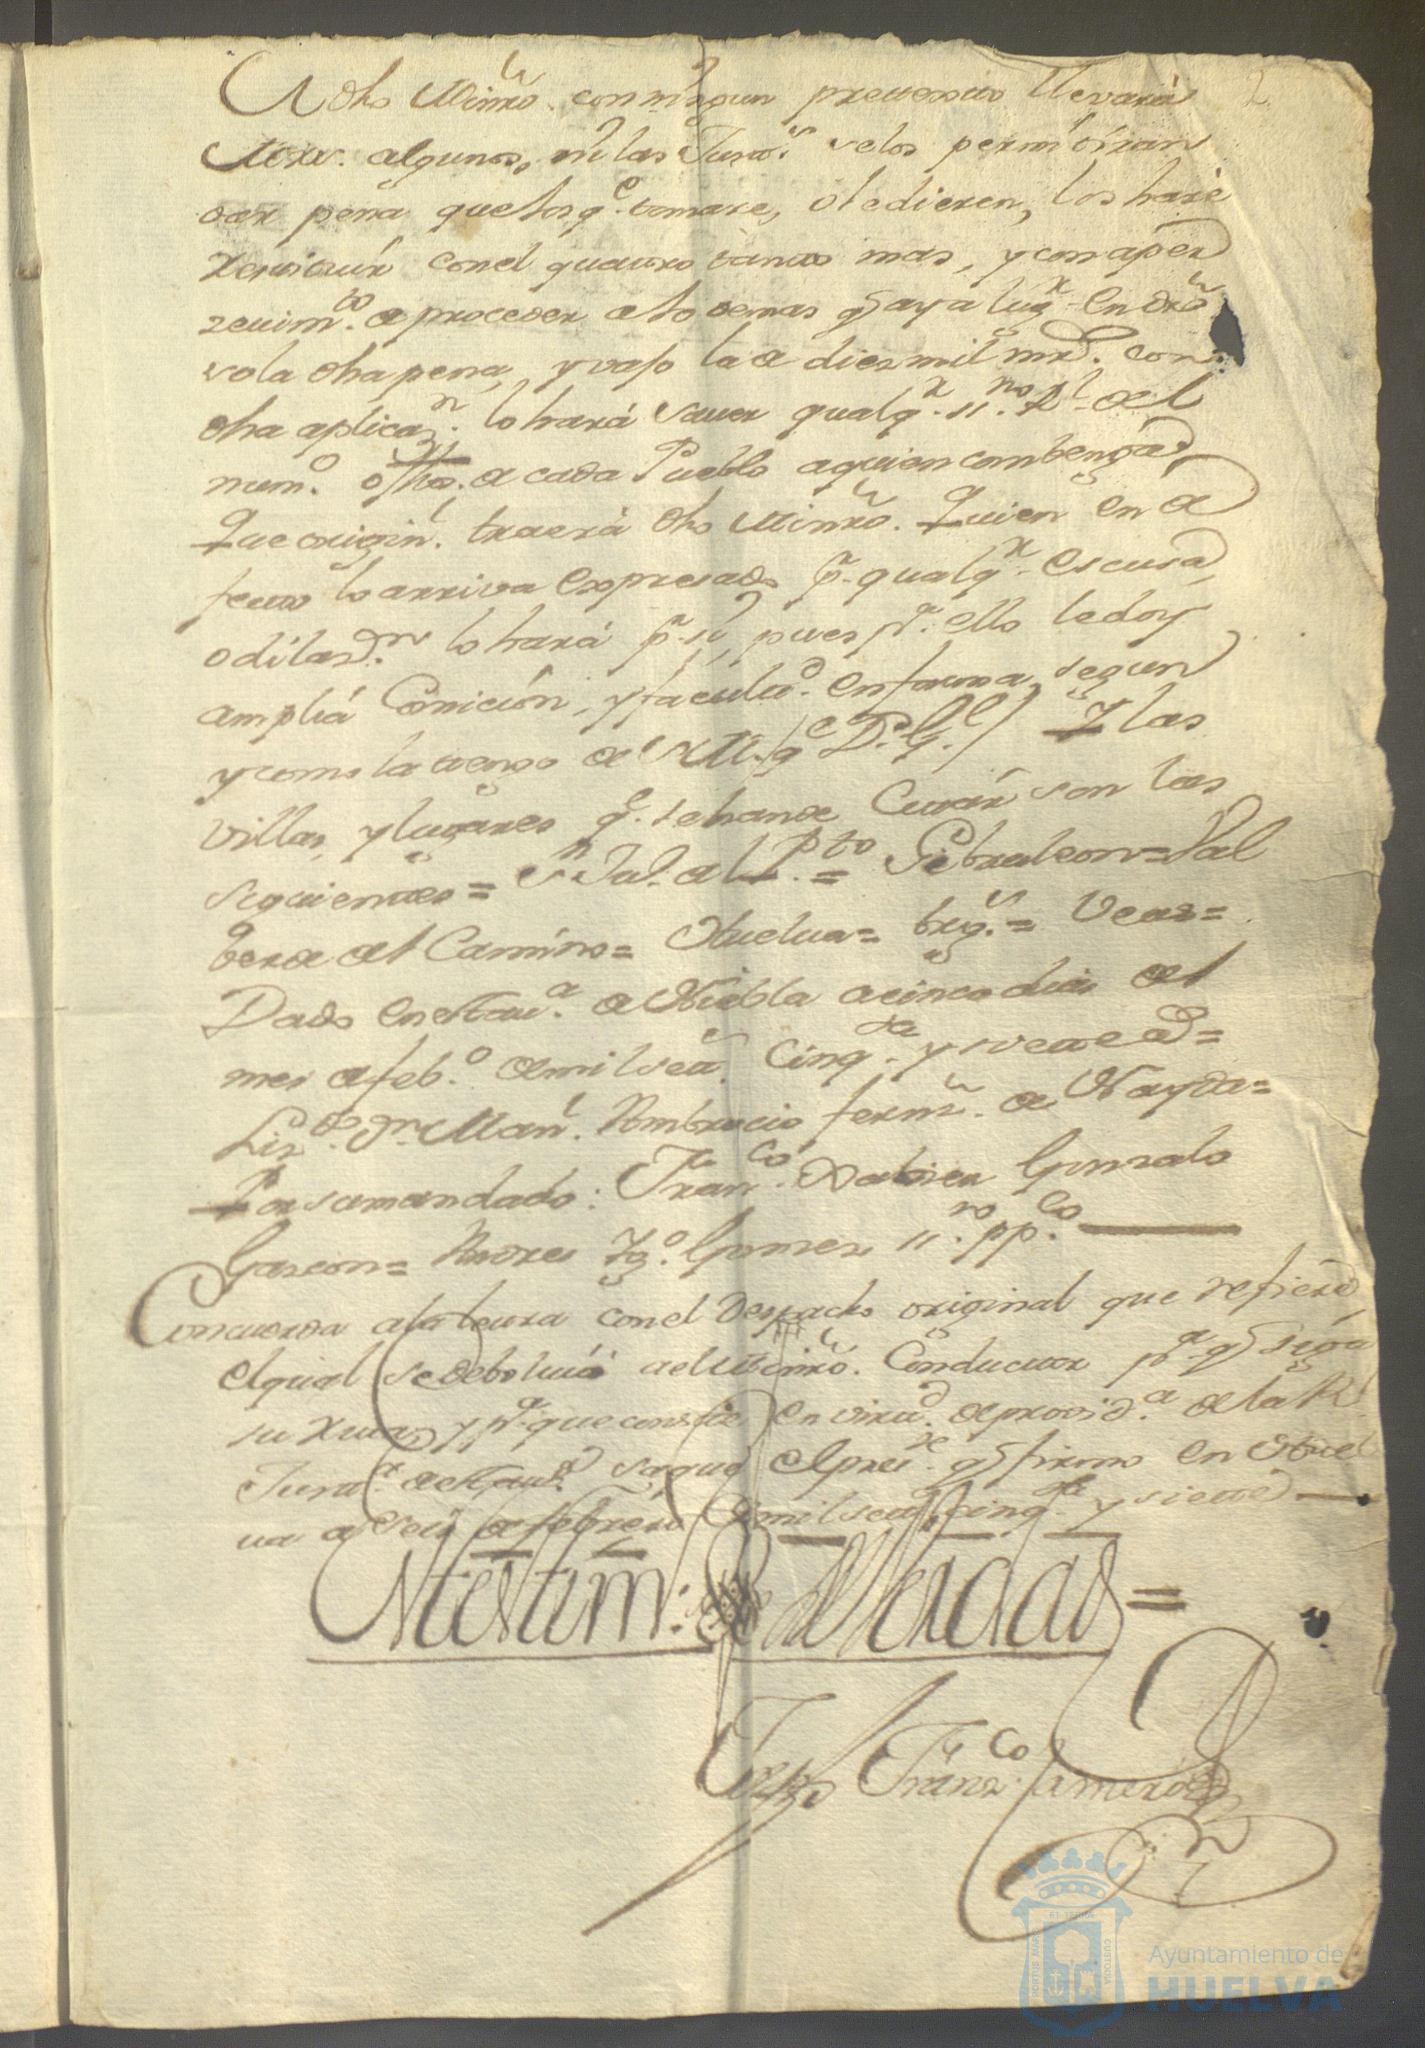 2
A dho Minro. con ningun pretexto llevará
Mrv. algunos, ni las Just.s se los permitiran
dar pena que los q.e tomare, ó le dieren, los haré
restituir con el quatro tanto mas, y con aper
zevim.to de proceder a lo demas q aya lug.r en dro
so la dha pena, y vajo la de diez mil mrs. con
dha aplicaz.n lo hará saver qualq.r ss.no Rl. del
num.o ó fho. de cada Pueblo a quien combenga,
Que origin.l traerá dho Minro. Quien en de
fecto lo arriva Expresado p.r qualq.r escusa
o dilaz.n lo hará p.r si, pues p.a ello le doy
amplia Comicion, y facult.d en forma segun
y como la tengo de S M. (q.e D.s G.e) Y las
Villas, y lugares q.e se han de Cittar son las
siguientes = S.n Ju.n del P.to = Gibraleon = Val
berde del Camino = Huelva = Trig.s = Veas =
Dado en esta v.a de Niebla a cinco dias del
mes de feb.o de mil sett.s Cinq.ta y siete a.s =
Liz.do Dn. Man.l Ambrocio ferm.n de Nayda =
Por su mandado: Fran.co Xabier Gonzalo
Garzon = Andres Ig.o Gomez ss.no pp.co
Concuerda a la letra con el despacho original que refiere
el qual se debolvió a el Minro. Conductor p.a q siga
su ruta, y p.a que conste en virtu.d de provid.a de la R.l
Junt.a de esta v.a saque el pres.te q firmo en Huel
va a seis de febrero de mil sett.s cinq.ta y siette
En testim.o de Verdad =
Jossp Franz.co Camero
Ayuntamiento de
HUELVA